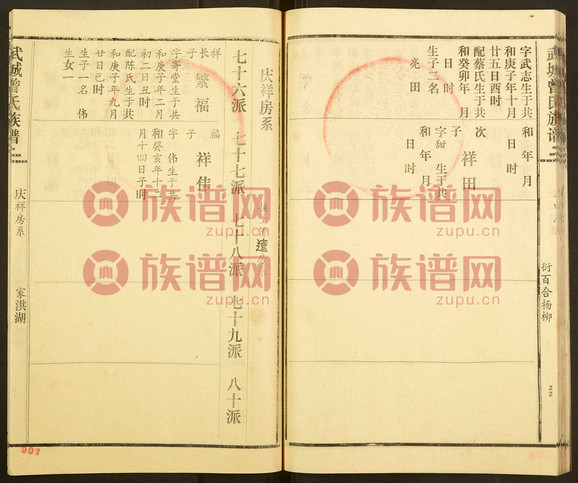 武城曾氏族谱
衍百合杨柳
22
字武志生于共
和庚子年十月
廿五日酉时
配蔡氏生于共
和癸卯年 月
日时
生子二名
兆田
和 年 月
日 时
次
子 祥田
字甜 生于共
和 年 月
日 时
庆祥房系
七十六派 七十七派 七十八派 七十九派 八十派
祥
长 繁福
子
字寄堂生于共
和庚子年二月
初二日丑时
配陈氏生于共
和庚子年九月
廿日巳时
生子一名 伟
生女一
福
子 祥伟
字 伟生于共
和癸亥年十二
月十四日子时
武城曾氏族谱
庆祥房系
家洪湖
907
族谱网
zupu.cn
族谱网
zupu.cn
族谱网
zupu.cn
族谱网
zupu.cn